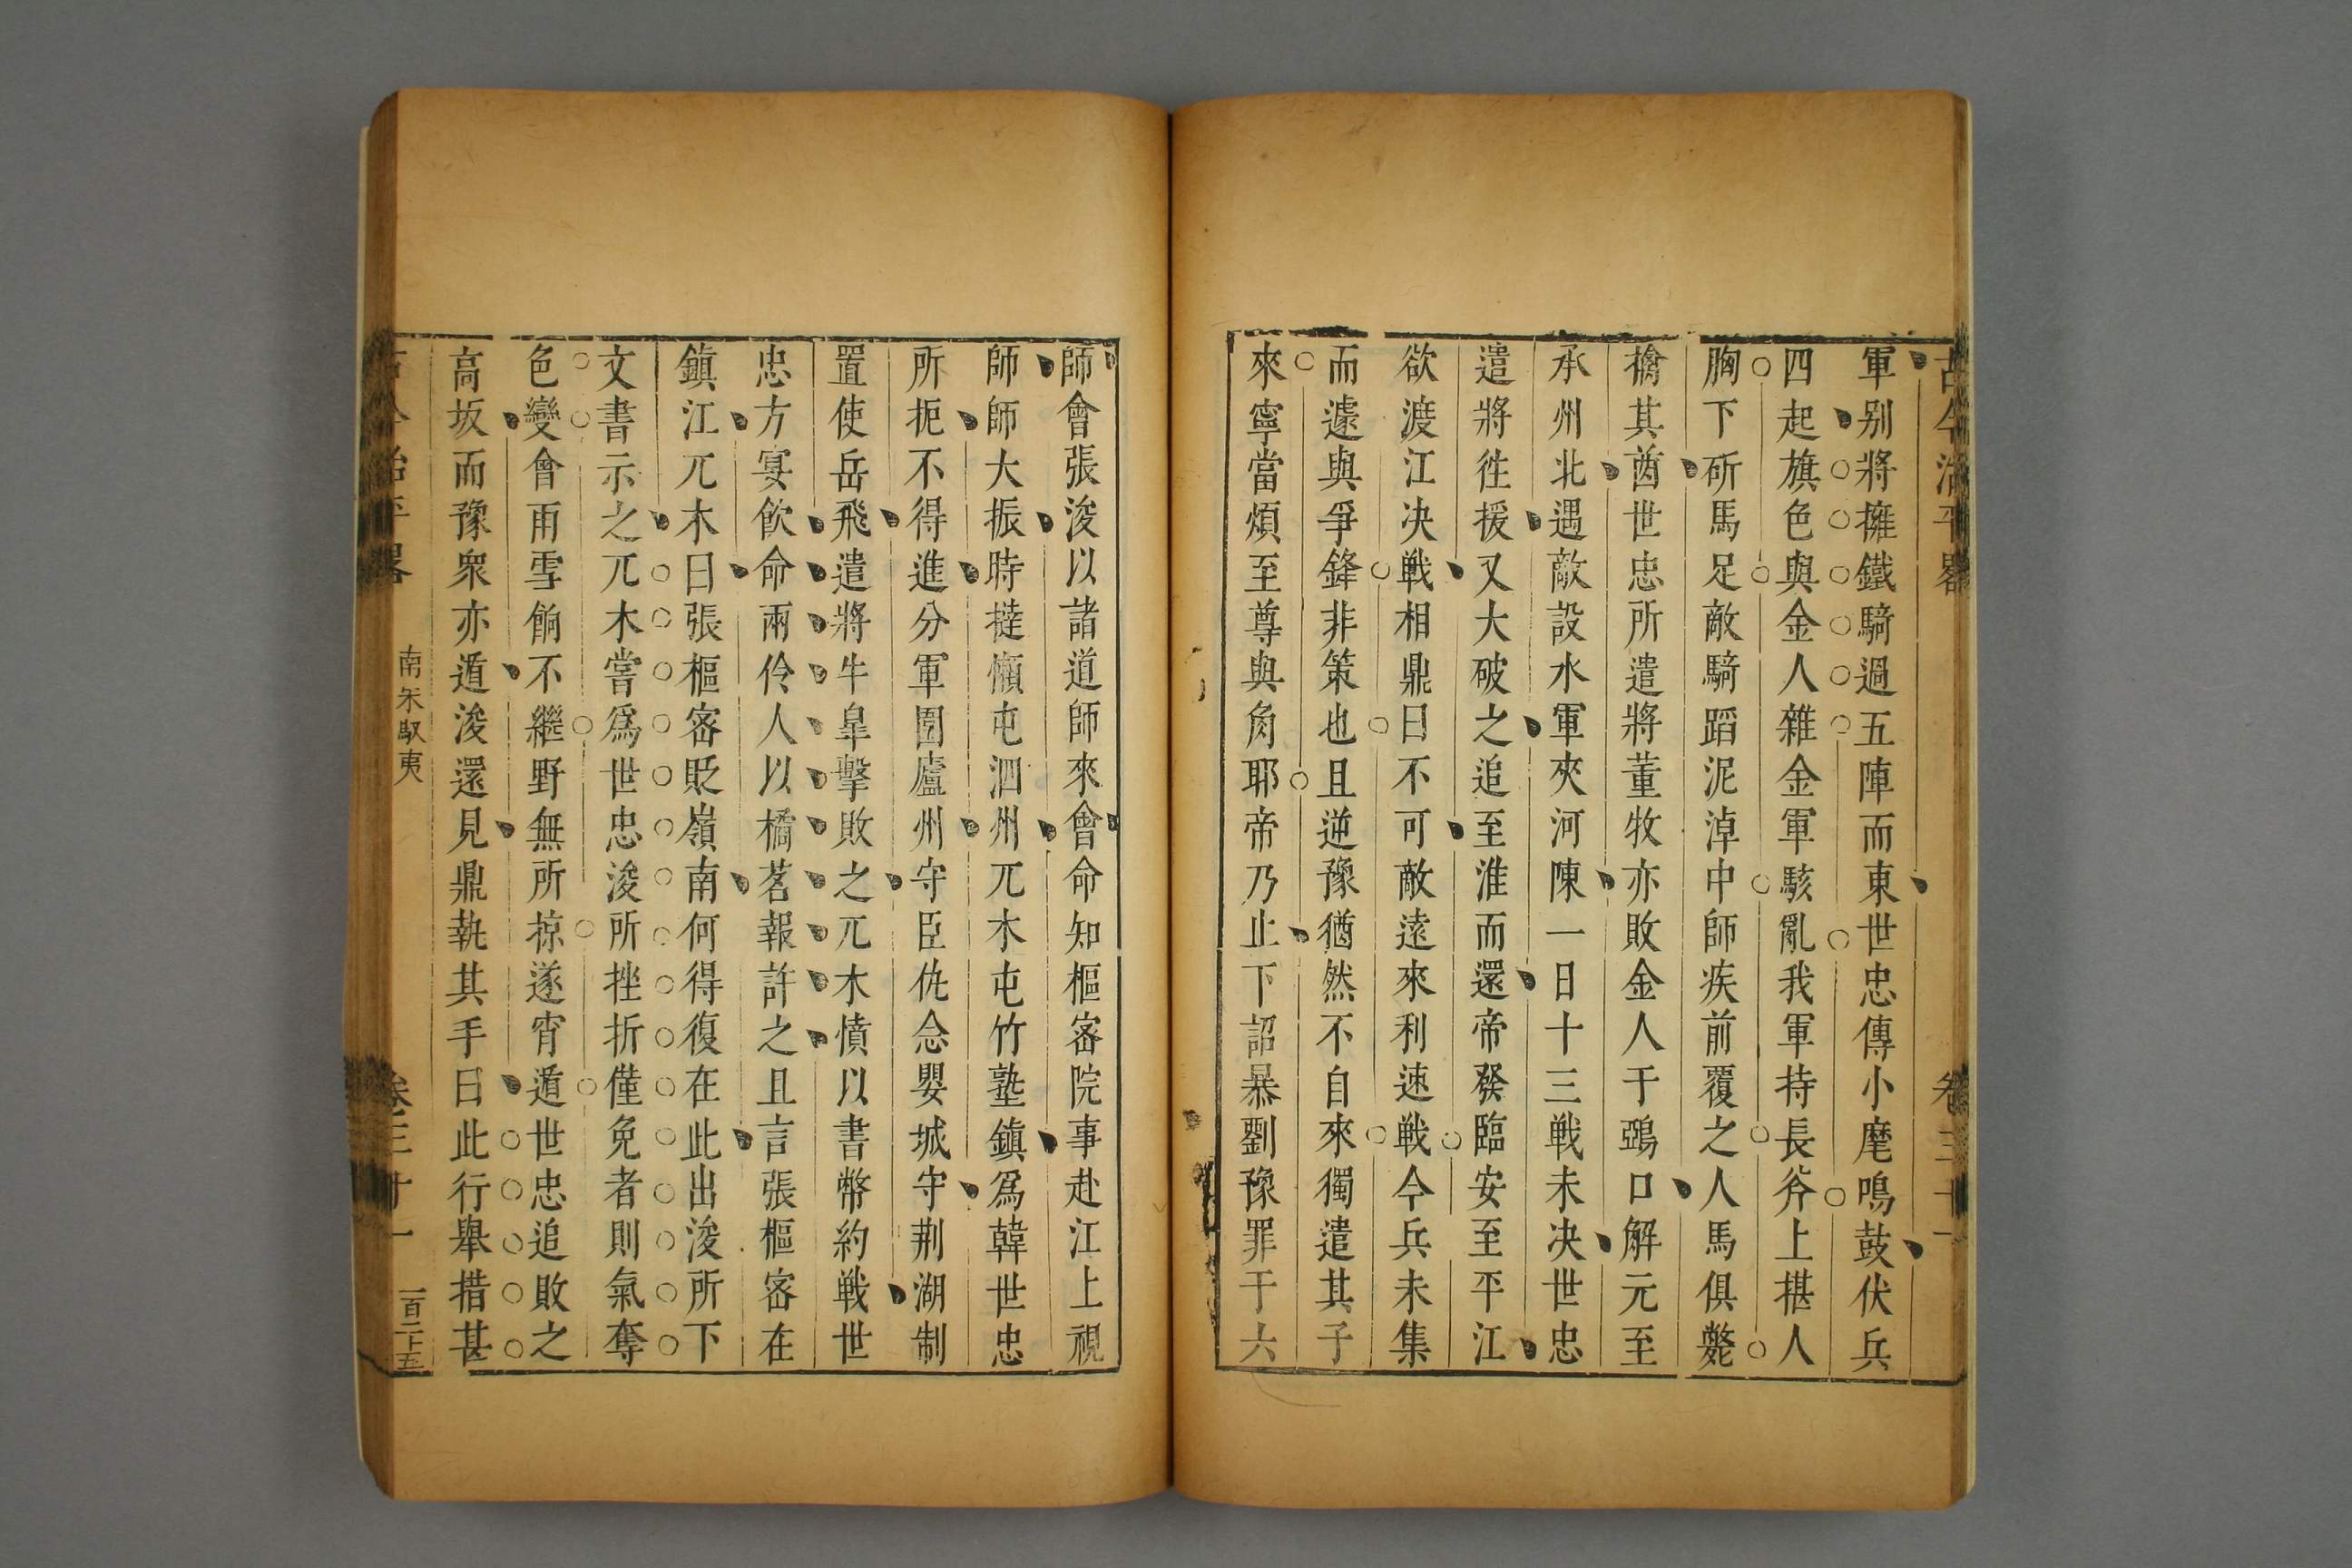 古今治平畧
卷三十一
軍别將擁鐵騎過五陣而東世忠傳小麾鳴鼓伏兵
四起旗色與金人雜金軍駭亂我軍持長斧上揕人
胸下斫馬足敵騎蹈泥淖中師疾前覆之人馬俱斃
擒其酋世忠所遣將董牧亦敗金人于鵶口解元至
承州北遇敵設水軍夾河陳一日十三戰未决世忠
遣將徃援又大破之追至淮而還帝發臨安至平江
欲渡江决戰相鼎曰不可敵遠來利速戰今兵未集
而遽與爭鋒非策也且逆豫猶然不自來獨遣其子
來寧當煩至尊與角耶帝乃止下詔暴劉豫罪于六
師會張浚以諸道師來會命知樞密院事赴江上視
師師大振時撻懶屯泗州兀术屯竹塾鎮爲韓世忠
所扼不得進分軍圍廬州守臣仇悆嬰城守荆湖制
置使岳飛遣將牛皐擊敗之兀术憤以書幣約戰世
忠方宴飲命兩伶人以橘茗報許之且言張樞密在
鎮江兀术曰張樞密貶嶺南何得復在此出浚所下
文書示之兀术嘗爲世忠浚所挫折僅免者則氣奪
色變會雨雪餉不繼野無所掠遂宵遁世忠追敗之
高坂而豫衆亦遁浚還見鼎執其手曰此行舉措甚
古今治平畧
南宋馭夷
卷三十一
一百二十五